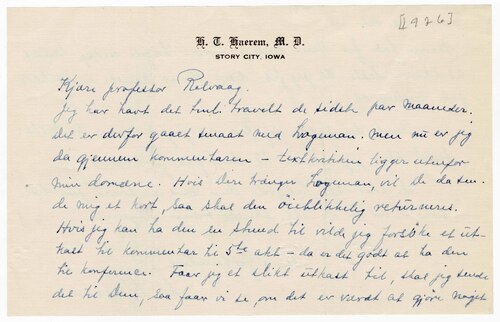 [1926]
H. T. Haerem, M. D.
STORY CITY, IOWA
Kjære professor Rølvaag.
Jeg har havt det travelt de sidste par maaneder.
Det er derfor gaaet smaat med Logeman. Men nu er jeg
da gjennem kommentaren – textkritikken ligger utenfor
min domæne. Hvis Dere trænger Logeman, vil De da sen-
de mig et kort, saa skal den øieblikkelig returneres.
Hvis jeg kan ha den en stund til vilde jeg forsøke et ut-
kast til kommentar til 5te akt – da er det godt at ha den
til konferance. Faar jeg et slikt utkast til, skal jeg sende
det til Dem, saa faar vi se, om det er værdt at gjøre noget